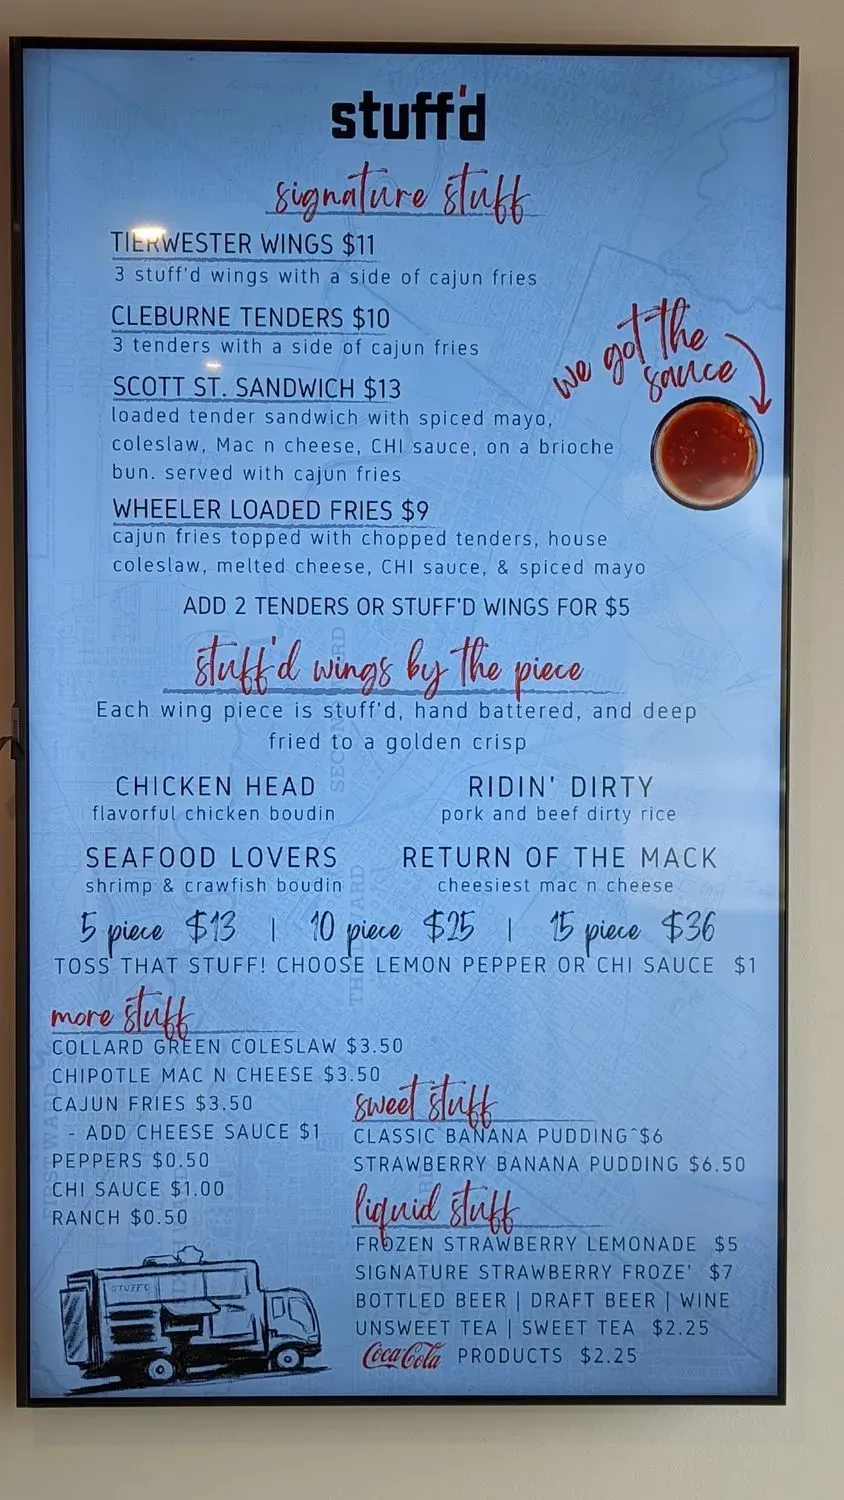 stuff'd
signature stuff
TIERWESTER WINGS $11
3 stuff'd wings with a side of cajun fries
CLEBURNE TENDERS $10
3 tenders with a side of cajun fries
we got the
sauce
SCOTT ST. SANDWICH $13
loaded tender sandwich with spiced mayo,
coleslaw, Mac n cheese, CHI sauce, on a brioche
bun. served with cajun fries
WHEELER LOADED FRIES $9
cajun fries topped with chopped tenders, house
coleslaw, melted cheese, CHI sauce, & spiced mayo
ADD 2 TENDERS OR STUFF'D WINGS FOR $5
stuff'd wings by the piece
Each wing piece is stuff'd, hand battered, and deep
fried to a golden crisp
CHICKEN HEAD
flavorful chicken boudin
RIDIN' DIRTY
pork and beef dirty rice
SEAFOOD LOVERS
shrimp & crawfish boudin
RETURN OF THE MACK
cheesiest mac n cheese
5 piece $13 | 10 piece $25 | 15 piece $36
TOSS THAT STUFF! CHOOSE LEMON PEPPER OR CHI SAUCE $1
more stuff
COLLARD GREEN COLESLAW $3.50
CHIPOTLE MAC N CHEESE $3.50
CAJUN FRIES $3.50
- ADD CHEESE SAUCE $1
PEPPERS $0.50
CHI SAUCE $1.00
RANCH $0.50
sweet stuff
CLASSIC BANANA PUDDING^$6
STRAWBERRY BANANA PUDDING $6.50
liquid stuff
FROZEN STRAWBERRY LEMONADE $5
SIGNATURE STRAWBERRY FROZE' $7
BOTTLED BEER | DRAFT BEER | WINE
UNSWEET TEA | SWEET TEA $2.25
Coca-Cola PRODUCTS $2.25
STUFF'D